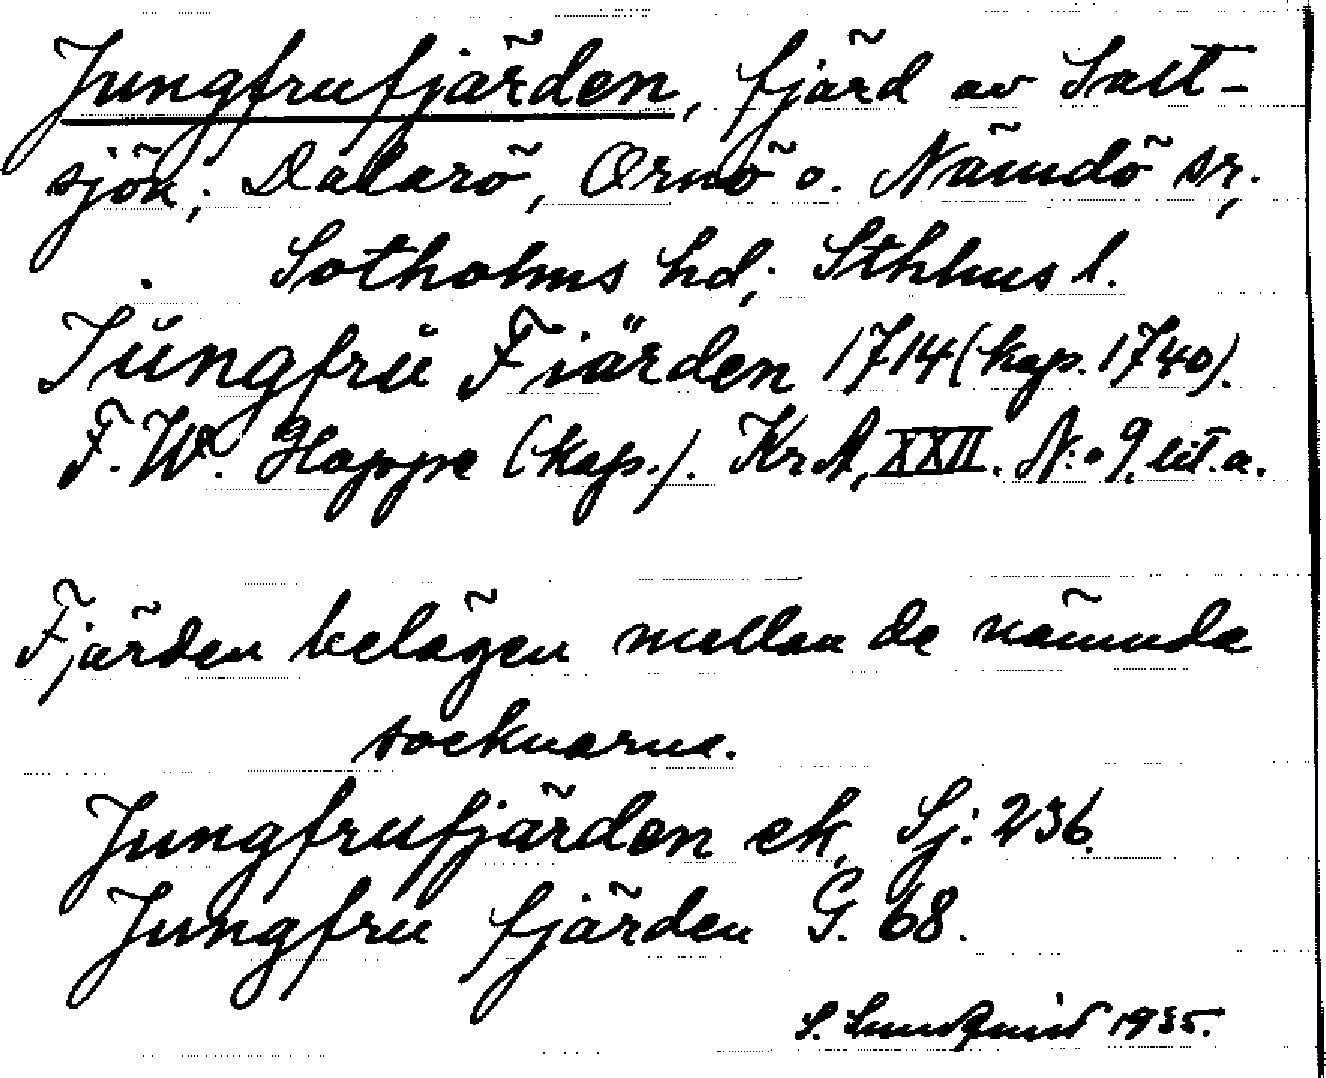 Jungfrufjärden, fjärd av Salt-
sjön; Dalarö, Ornö o. Nämdö sr,
Sotholms hd; Sthlms l.
Jŭngfrŭ Fiärden 1714 (kap. 1740).
F. W. Hoppe (kap.). Kr A, XXII. N:o 9. lit. a.
Fjärden belägen mellan de nämnda
socknarna.
Jungfrufjärden ek. Sj: 236.
Jungfru fjärden G. 68.
S. Sundqvist 1935.